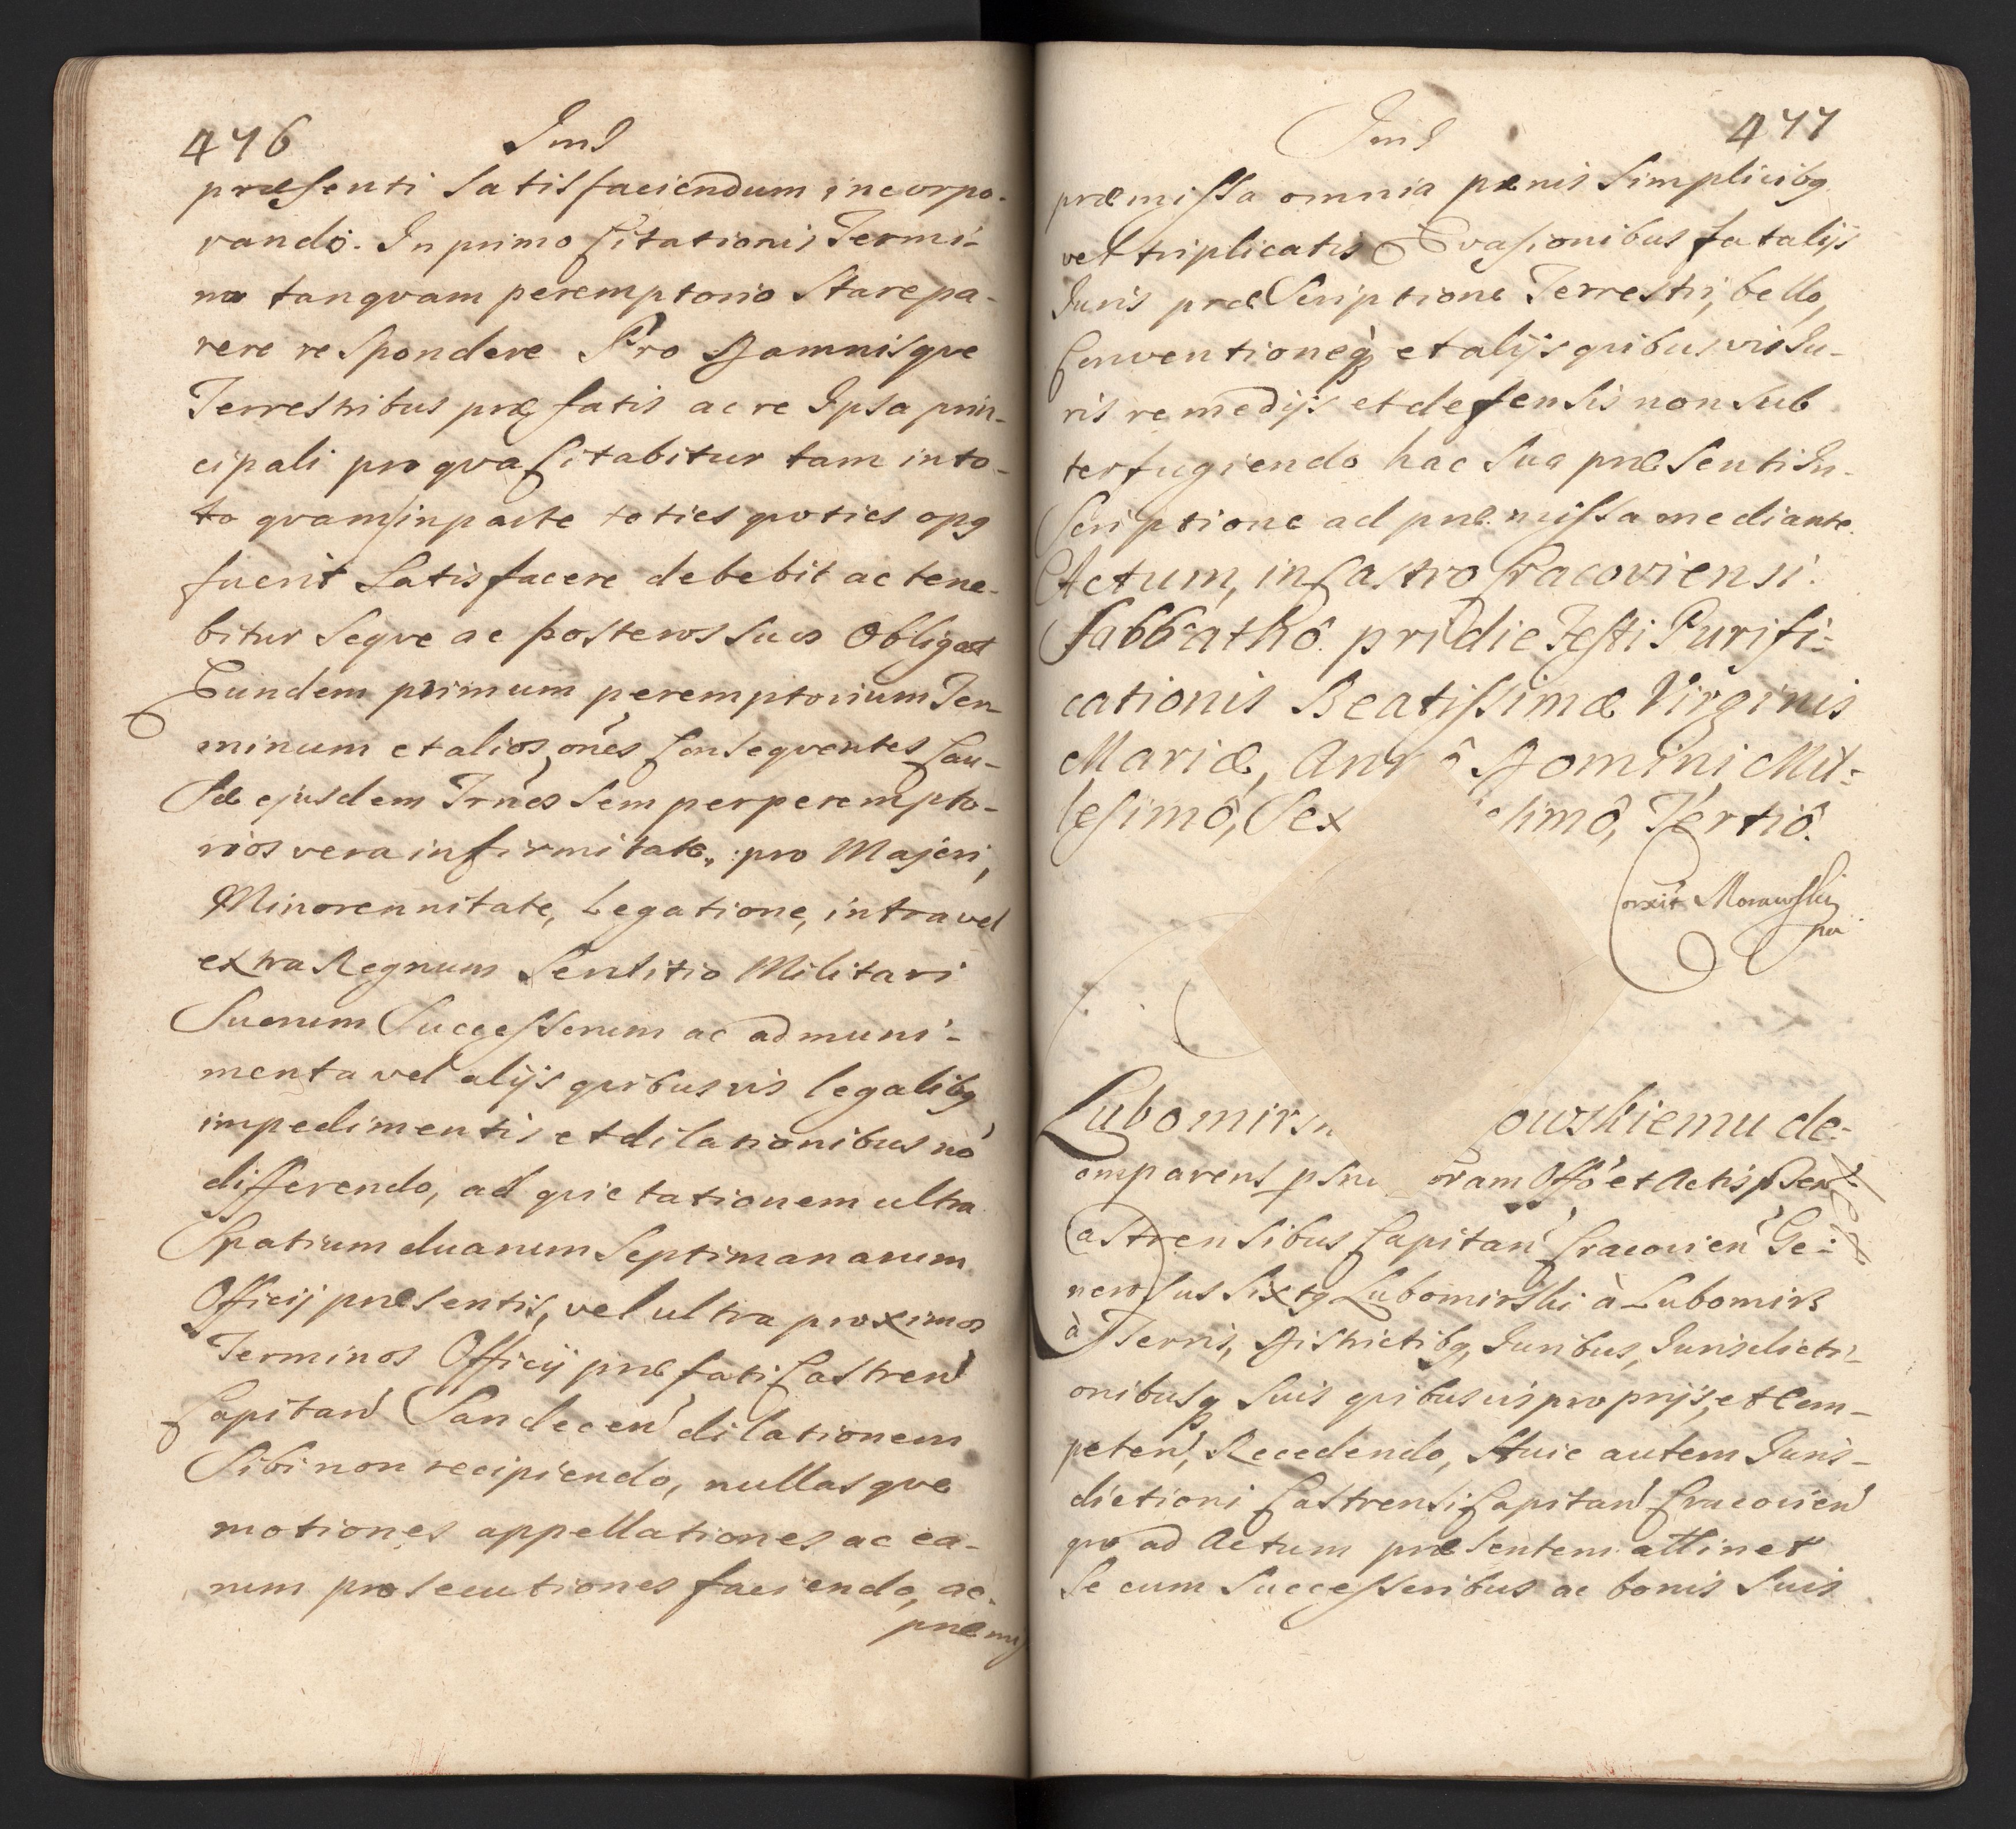 476
præsenti satisfaciendum incorpo-
rando. In primo Citationis Termi-
no tanqvam peremptorio stare pa-
rere respondere Pro Damnisqve
Terrestribus præfatis ac re Ipsa prin-
cipali pro qva Citabitur tam in to-
to qvam in parte toties qvoties opq
fuerit satisfacere debebit ac tene-
bitur seqve ac posteros suos Obligat
Eundem primum peremptorium Ter
minum et alios, oñes Conseqventes Cau-
sæ ejusdem Trños semper perempto-
rios vera infirmitate, pro Majori,
Minorennitate, Legatione, intra vel
extra Regnum Servitio Militari
Suorum Successorum ac ad muni-
menta vel alijs qvibusvis legalibq
impedimentis et dilationibus nō
differendo, ad qvietationem ultra
Spatium duarum Septimanarum
Officij præsentis, vel ultra proximos
Terminos Officij præfati Castreñ
Capitañ Sandeceñ dilationem
Sibi non recipiendo, nullasqve
motiones appellationes ac ea-
rum prosecutiones faciendo, ac
præmis
477
præmissa omnia pænis simplicibq
vel triplicatis Evasionibus fatalijs
Juris præscriptione Terrestri, bello,
Conventioneq et alijs qvibusvis Ju-
ris remedijs et defensis non sub
terfugiendo hac sua præsenti In-
scriptione ad præmissa mediante.
Actum, in Castro Cracoviensi.
Sabbathô. pridie Festi Purifi-
cationis Beatissimæ Virginis
Mariæ, Annô Domini Mil-
lesimô, Sex simô, Tertiô.
Morawski
Lubomirs owskiemu de-
omparens oram Offō et Actis pñ
Castrensibus Capitañ Cracovieñ Ge-
nerosus Sixtq Lubomirski à Lubomirz
à Terris, Districtibq, Juribus, Jurisdicti-
onibusq suis qvibusvis proprijs, et Com-
peteñ, Recedendo, Huic autem Juris-
dictioni Castrensi Capitañ Cracovieñ
qvo ad Actum præsentem attinet
se cum Successoribus ac bonis suis